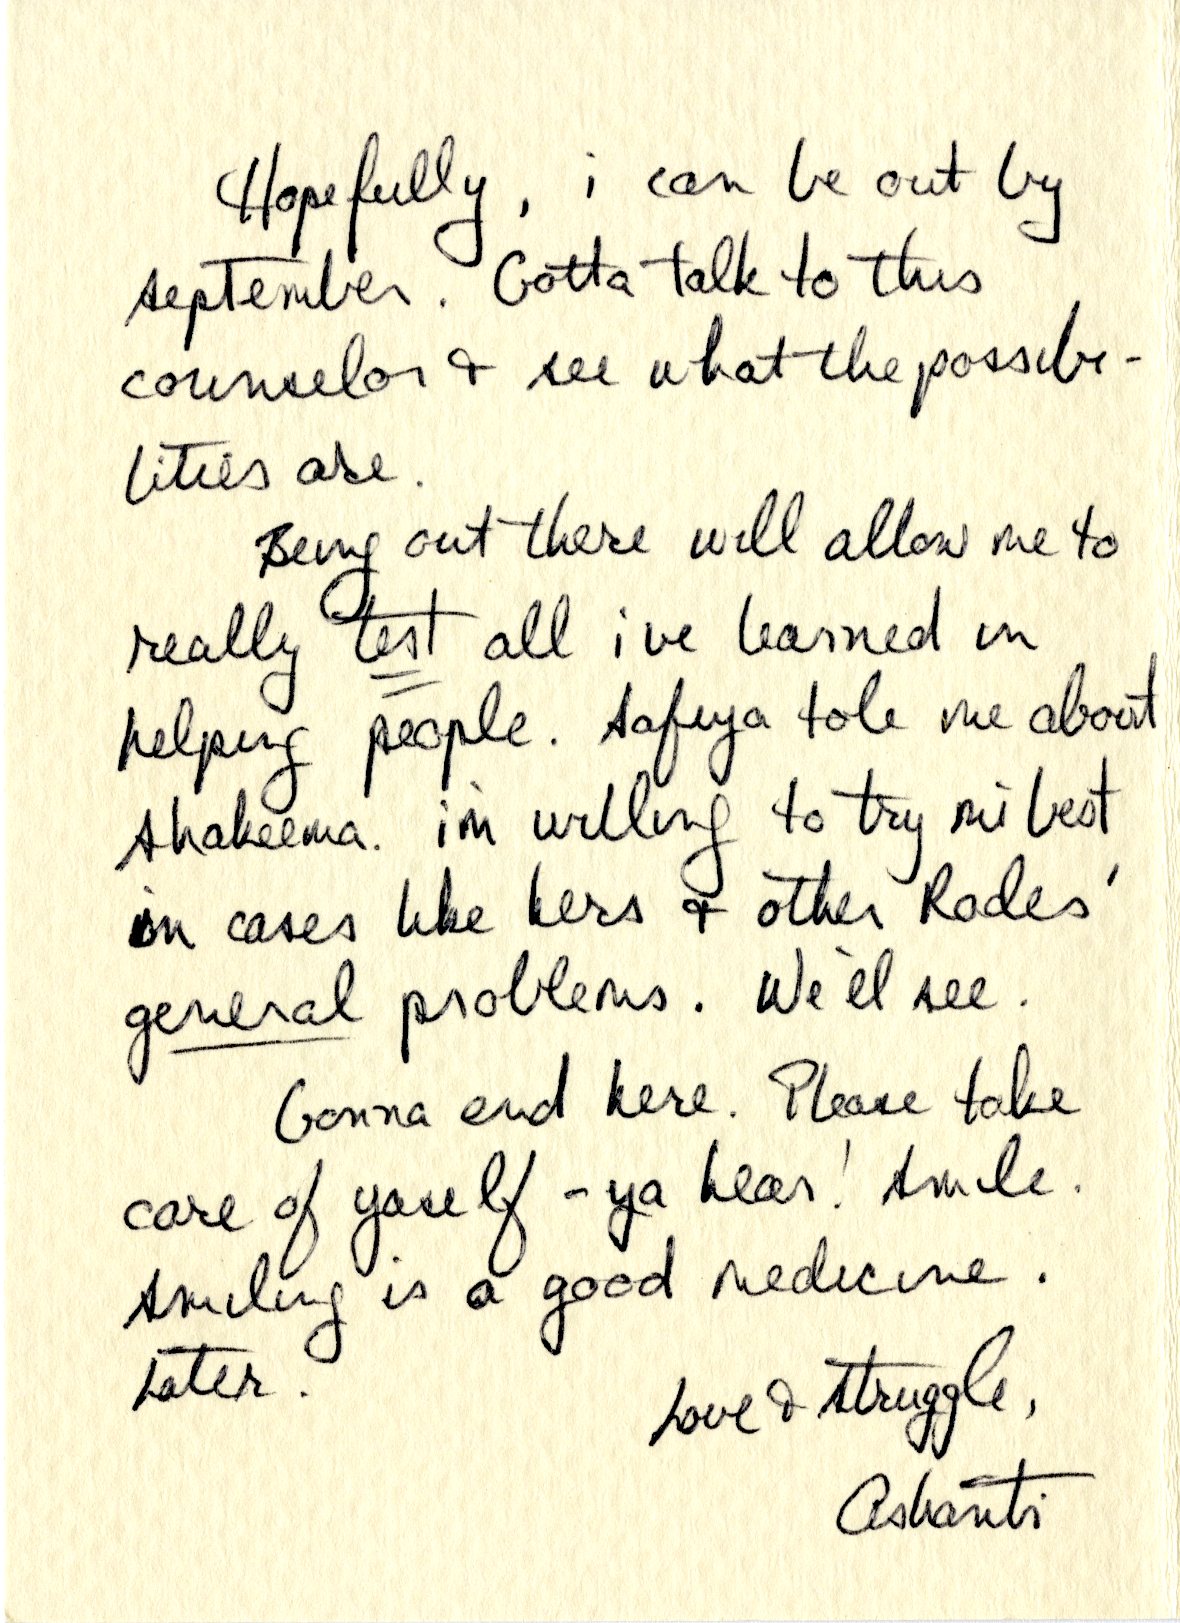 Hopefully, i can be out by
september. Gotta talk to this
counselor & see what the possibi-
lities are.
Being out there will allow me to
really test all i've learned in
helping people. Safiya tole me about
Shakeema. i'm willing to try mi best
in cases like hers & other Rades'
general problems. We'el see.
Gonna end here. Please take
care of yaself - ya hear! Smile.
Smiling is a good medicine.
Later.
Love & Struggle,
Ashanti